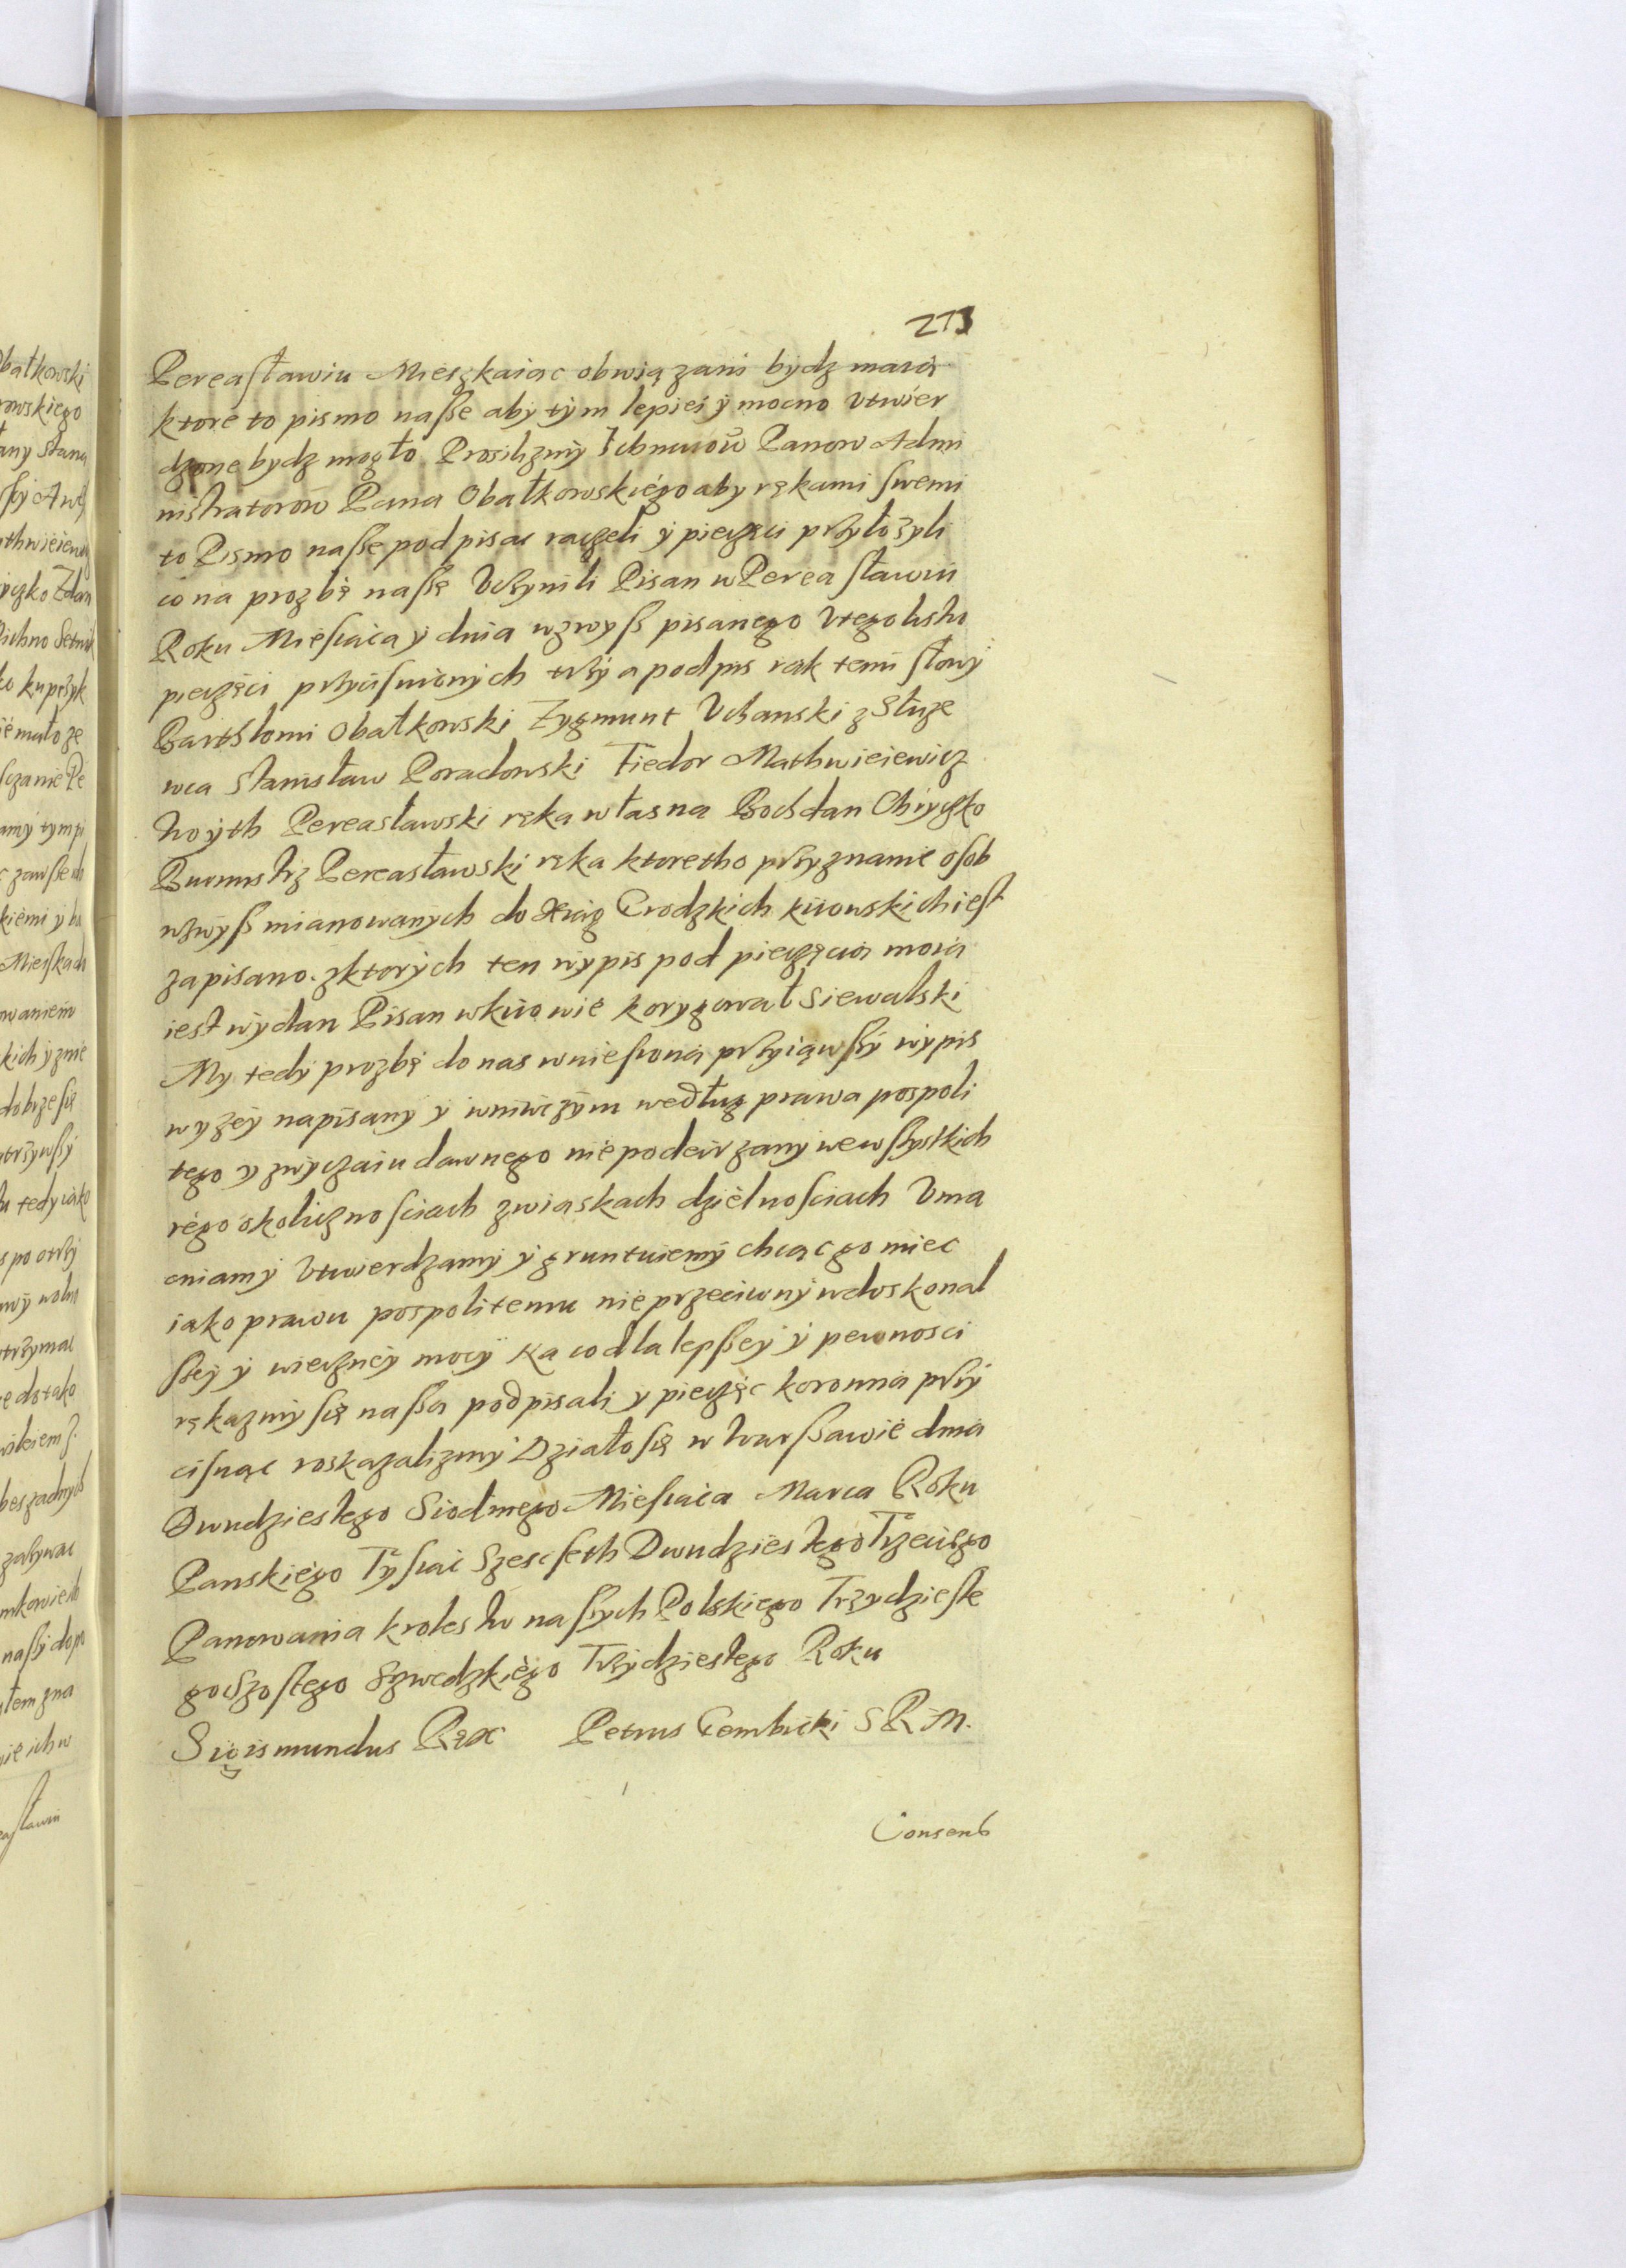 273
Pereasławiu Mieszkaiąc obwiązani bydz maią
ktore to pismo nasse aby tym lepiei y mocno vtwier
dzone bydz mogło Prosilizmy Ichmciow Panow Admi
nistratorow Pana Obałkowskiego aby rękami swemi
to Pismo nasse podpisac raczeli y pieczęci przyłożyli
co na prozbę nassę Vczynili Pisan w Pereasławiu
Roku Miesiąca y dnia wzwyss pisanego V tego listu
pieczęci przycisnionych trzy a podpis rąk temi słowy
Barthłomi Obałkowski Zygmunt Vchanski z Służe
wca Stanisław Poradowski Fiedor Mathwieiewicz
Woyth Pereasławski ręka własna Bochdan Chryczko
Burmistrz Pereasławski ręka ktoretho przyznanie osob
wzwyss mianowanych do Xiąg Grodzkich kiiowskich iest
zapisano. z ktorych ten wypis pod pieczęcią moią
iest wydan Pisan w kiiowie korygował Siewalski
My tedy prozbę do nas wniesioną przyiąwssy wypis
wyzey napisany y wniwczym według prawa pospoli
tego y zwyczaiu dawnego niepodeirzany we wssystkich
iego okolicznosciach zwiąskach dzielnosciach Vma
cniamy Vtwierdzamy y gruntuiemy chcąc go miec
iako prawu pospolitemu nieprzeciwny w doskonal
ssey y wieczney mocy Na co dla lepssey y pewnosci
ręką zmy się nassą podpisali y pieczęc koronną przy
cisnąc roskazalizmy Działo się w Warssawie dnia
Dwudziestego Siodmego Miesiąca Marca Roku
Panskiego Tysiąc Szescseth Dwudziestego Trzeciego
Panowania krolestw nassych Polskiego Trzydzieste
go Szostego Szwedzkiego Trzydziestego Roku
Sigismundus Rex Petrus Gembicki S R M.
Consens